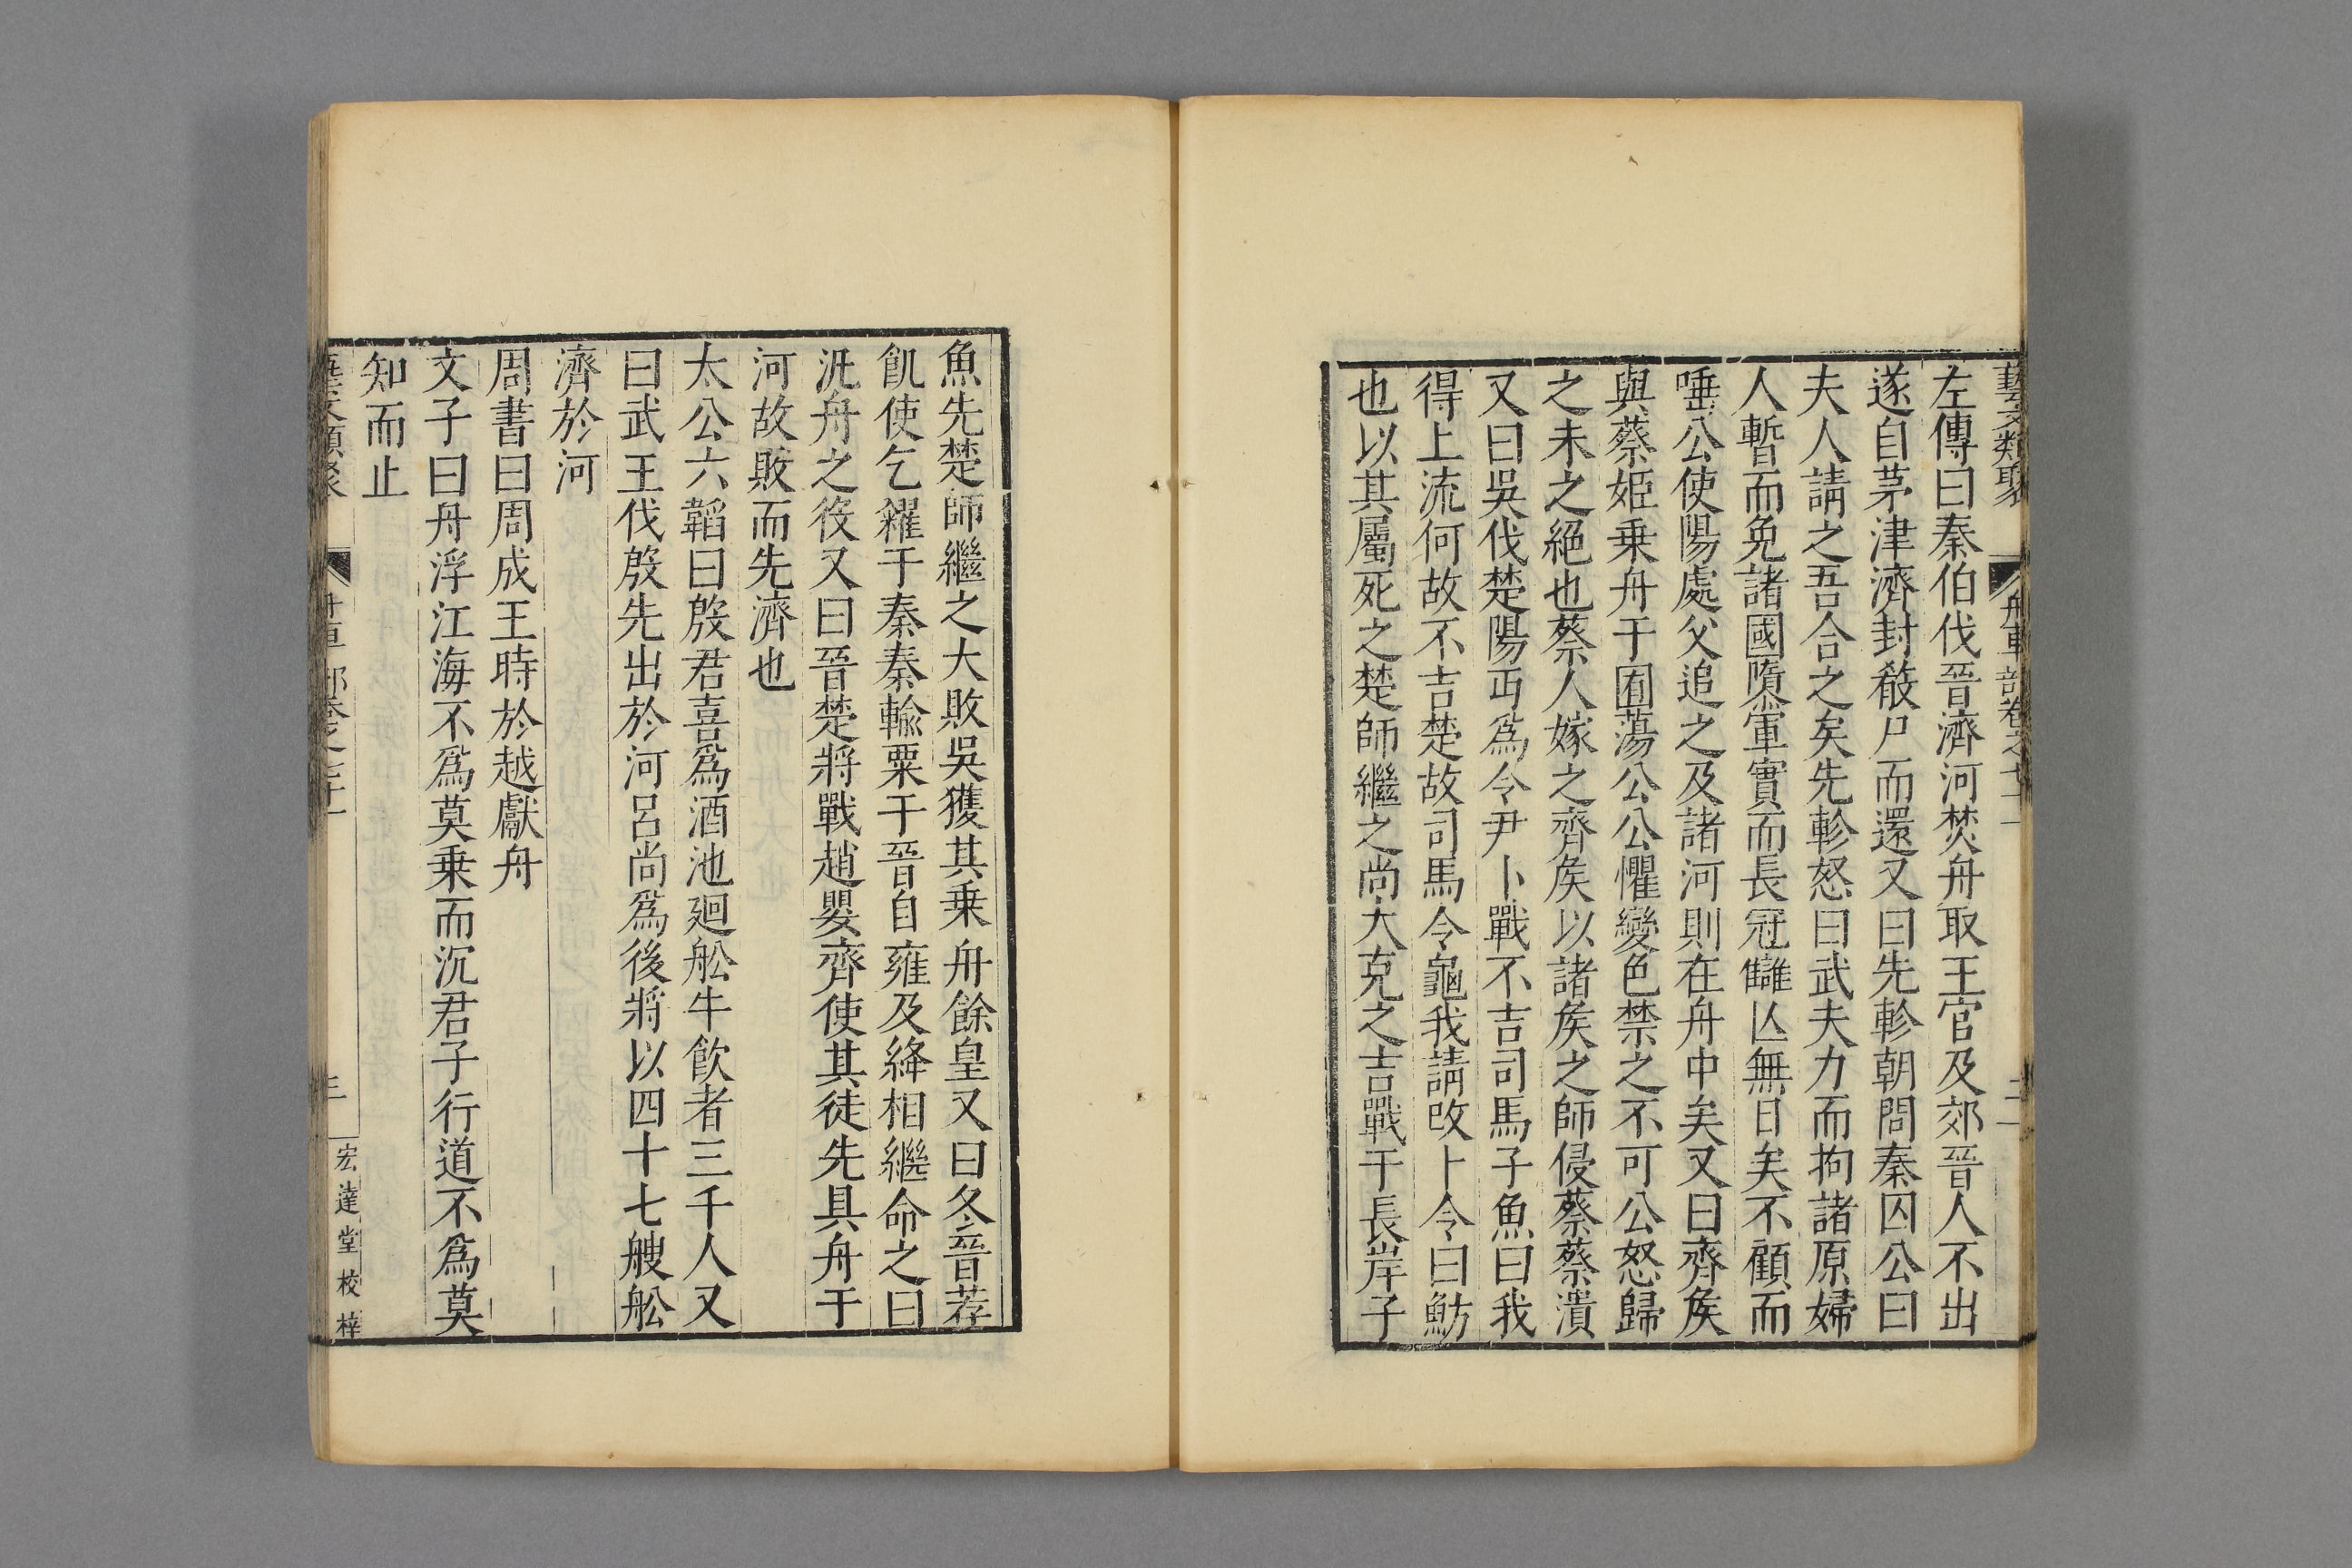 藝文類聚 舟車部卷之七十一 二
左傳曰秦伯伐晉濟河焚舟取王官及郊晉人不出
遂自茅津濟封殽尸而還又曰先軫朝問秦囚公曰
夫人請之吾合之矣先軫怒曰武夫力而拘諸原婦
人暫而免諸國隳軍實而長寇讎亾無日矣不顧而
唾公使陽處父追之及諸河則在舟中矣又曰齊矦
與蔡姬乗舟于囿蕩公公懼變色禁之不可公怒歸
之未之絕也蔡人嫁之齊矦以諸矦之師侵蔡蔡潰
又曰吳伐楚陽丏爲令尹卜戰不吉司馬子魚曰我
得上流何故不吉楚故司馬令龜我請改卜令曰魴
也以其屬死之楚師繼之尚大克之吉戰于長岸子
魚先楚師繼之大敗吳獲其乗舟餘皇又曰冬晉荐
飢使乞糴于秦秦輸粟于晉自雍及絳相繼命之曰
汎舟之役又曰晉楚將戰趙嬰齊使其徒先具舟于
河故敗而先濟也
太公六韜曰殷君喜爲酒池廻舩牛飮者三千人又
曰武王伐殷先出於河呂尚爲後將以四十七艘舩
濟於河
周書曰周成王時於越獻舟
文子曰舟浮江海不爲莫乗而沉君子行道不爲莫
知而止
藝文類聚 舟車部卷之七十一 三 宏達堂校梓